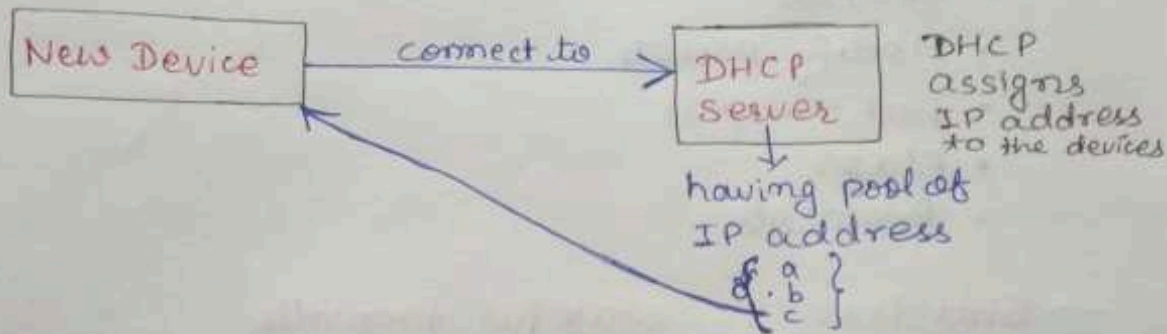 New Device
connect to
DHCP
Server
DHCP
assigns
IP address
to the devices
having pool of
IP address
{ a
. b
c }